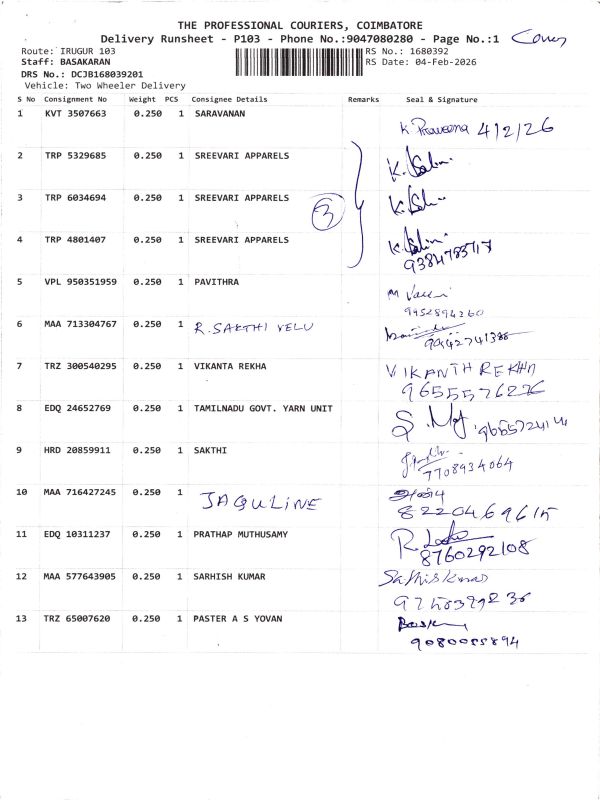 THE PROFESSIONAL COURIERS, COIMBATORE
Delivery Runsheet - P103 - Phone No.:9047080280 - Page No.:1
Route: IRUGUR 103 RS No.: 1680392
Staff: BASAKARAN RS Date: 04-Feb-2026
DRS No.: DCJB168039201
Vehicle: Two Wheeler Delivery
S No Consignment No Weight PCS Consignee Details Remarks Seal & Signature
1 KVT 3507663 0.250 1 SARAVANAN
K. Praveena 4/2/26
2 TRP 5329685 0.250 1 SREEVARI APPARELS
3 TRP 6034694 0.250 1 SREEVARI APPARELS
3
4 TRP 4801407 0.250 1 SREEVARI APPARELS
9384783717
5 VPL 950351959 0.250 1 PAVITHRA
9952894260
6 MAA 713304767 0.250 1 R. SAKTHI VELU
7 TRZ 300540295 0.250 1 VIKANTA REKHA
VIKANTH REKHA
9655576276
8 EDQ 24652769 0.250 1 TAMILNADU GOVT. YARN UNIT
9 HRD 20859911 0.250 1 SAKTHI
7708934064
10 MAA 716427245 0.250 1 JAQULINE
8220469615
11 EDQ 10311237 0.250 1 PRATHAP MUTHUSAMY
8760292108
12 MAA 577643905 0.250 1 SARHISH KUMAR
Sathiskumar
13 TRZ 65007620 0.250 1 PASTER A S YOVAN